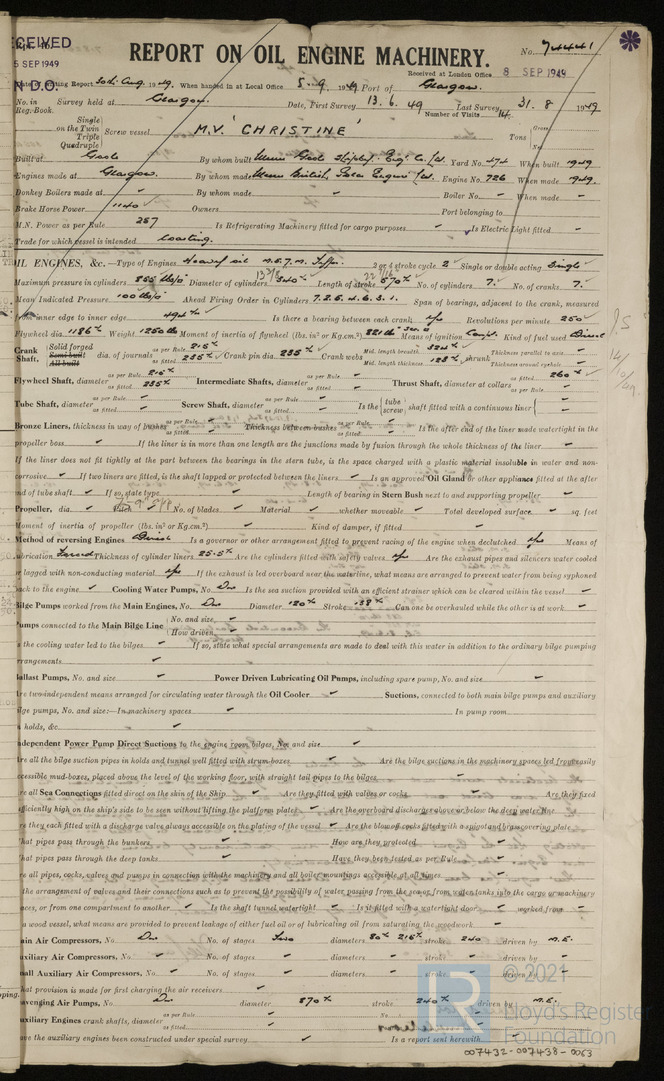 RECEIVED
5 SEP 1949
N D.O.
REPORT ON OIL ENGINE MACHINERY.
No. 74441
Received at London Office 8 SEP 1949
Date of writing Report 30th Aug. 1949. When handed in at Local Office 5. 9. 1949 Port of Glasgow.
No. in Survey held at Glasgow. Date, First Survey 13. 6. 49 Last Survey 31. 8 1949
Reg. Book. Number of Visits 14.
Single
on the Twin
Triple
Quadruple
Screw vessel M.V. 'CHRISTINE' Tons Gross
Net
Built at Goole By whom built Yard No. 474 When built 1949
Engines made at Glasgow. By whom made Engine No. 726 When made 1949.
Donkey Boilers made at By whom made Boiler No. When made
Brake Horse Power 1140 Owners Port belonging to
M.N. Power as per Rule 257 Is Refrigerating Machinery fitted for cargo purposes. Is Electric Light fitted
Trade for which vessel is intended Coasting.
OIL ENGINES, &c.—Type of Engines Heavy oil 2 or 4 stroke cycle 2 Single or double acting Single
Maximum pressure in cylinders 855 lbs/□" Diameter of cylinders 340 Length of stroke 570 No. of cylinders 7. No. of cranks 7.
Mean Indicated Pressure 100 lbs/□" Ahead Firing Order in Cylinders 7.2.5.4.6.3.1. Span of bearings, adjacent to the crank, measured
from inner edge to inner edge 494 Is there a bearing between each crank Yes Revolutions per minute 250
Flywheel dia. 1186 Weight 1250 lbs Moment of inertia of flywheel (lbs. in² or Kg.cm.²) Means of ignition Comp. Kind of fuel used Diesel
Crank Shaft, Solid forged
Semi built
All built
dia. of journals as per Rule 215 as fitted 235 Crank pin dia. 235 Crank webs Mid. length breadth 324 Mid. length thickness 128 shrunk Thickness parallel to axis
Thickness around eyehole
Flywheel Shaft, diameter as per Rule 215 as fitted 235 Intermediate Shafts, diameter as per Rule as fitted Thrust Shaft, diameter at collars as fitted 260 as per Rule
Tube Shaft, diameter as per Rule as fitted Screw Shaft, diameter as per Rule as fitted Is the tube screw shaft fitted with a continuous liner
Bronze Liners, thickness in way of bushes as per Rule as fitted Thickness between bushes as per Rule as fitted Is the after end of the liner made watertight in the
propeller boss If the liner is in more than one length are the junctions made by fusion through the whole thickness of the liner
If the liner does not fit tightly at the part between the bearings in the stern tube, is the space charged with a plastic material insoluble in water and non-
corrosive If two liners are fitted, is the shaft lapped or protected between the liners Is an approved Oil Gland or other appliance fitted at the after
end of tube shaft If so, state type Length of bearing in Stern Bush next to and supporting propeller
Propeller, dia. Pitch No. of blades Material whether moveable Total developed surface sq. feet
Moment of inertia of propeller (lbs. in² or Kg.cm.²) Kind of damper, if fitted
Method of reversing Engines Direct Is a governor or other arrangement fitted to prevent racing of the engine when declutched Yes Means of
lubrication Forced Thickness of cylinder liners 25.5 Are the cylinders fitted with safety valves Yes Are the exhaust pipes and silencers water cooled
or lagged with non-conducting material Yes If the exhaust is led overboard near the waterline, what means are arranged to prevent water from being syphoned
back to the engine Cooling Water Pumps, No. One Is the sea suction provided with an efficient strainer which can be cleared within the vessel
Bilge Pumps worked from the Main Engines, No. One Diameter 120 Stroke 138 Can one be overhauled while the other is at work
Pumps connected to the Main Bilge Line No. and size
How driven
Is the cooling water led to the bilges If so, state what special arrangements are made to deal with this water in addition to the ordinary bilge pumping
arrangements
Ballast Pumps, No. and size Power Driven Lubricating Oil Pumps, including spare pump, No. and size
Are two independent means arranged for circulating water through the Oil Cooler Suctions, connected to both main bilge pumps and auxiliary
bilge pumps, No. and size:—In machinery spaces In pump room
In holds, &c.
Independent Power Pump Direct Suctions to the engine room bilges, No. and size
Are all the bilge suction pipes in holds and tunnel well fitted with strum-boxes Are the bilge suctions in the machinery spaces led from easily
accessible mud-boxes, placed above the level of the working floor, with straight tail pipes to the bilges
Are all Sea Connections fitted direct on the skin of the Ship Are they fitted with valves or cocks Are they fixed
sufficiently high on the ship's side to be seen without lifting the platform plates Are the overboard discharges above or below the deep water line
Are they each fitted with a discharge valve always accessible on the plating of the vessel Are the blow off cocks fitted with a spigot and brass covering plate
What pipes pass through the bunkers How are they protected
What pipes pass through the deep tanks Have they been tested as per Rule
Are all pipes, cocks, valves and pumps in connection with the machinery and all boiler mountings accessible at all times
Is the arrangement of valves and their connections such as to prevent the possibility of water passing from the sea or from water tanks into the cargo or machinery
spaces, or from one compartment to another Is the shaft tunnel watertight Is it fitted with a watertight door worked from
If a wood vessel, what means are provided to prevent leakage of either fuel oil or of lubricating oil from saturating the woodwork
Main Air Compressors, No. One No. of stages Two diameters 80 215 stroke 240 driven by M.E.
Auxiliary Air Compressors, No. No. of stages diameters stroke driven by
Small Auxiliary Air Compressors, No. No. of stages diameters stroke driven by
What provision is made for first charging the air receivers
Scavenging Air Pumps, No. One diameter 870 stroke 240 driven by M.E.
Auxiliary Engines crank shafts, diameter as per Rule as fitted No.
Have the auxiliary engines been constructed under special survey Is a report sent herewith
© 2021
Lloyd's Register
Foundation
007432-007438-0063